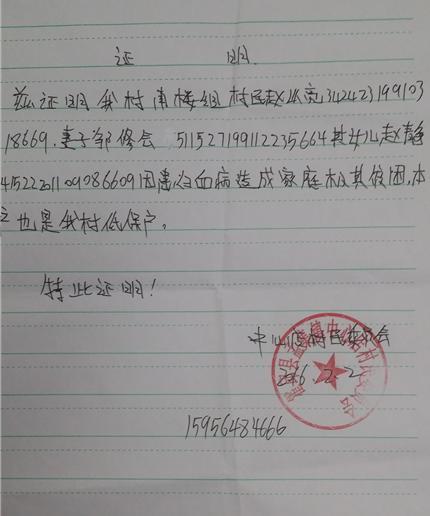 证 明
兹证明我村南楼组村民赵从亮342423199103
18669,妻子邹修会 511527199112235664其女儿赵静
415222011090866091因患白血病造成家庭极其贫困,本
户也是我村低保户。
特此证明!
村民委员会
2016.2.2
15956484666